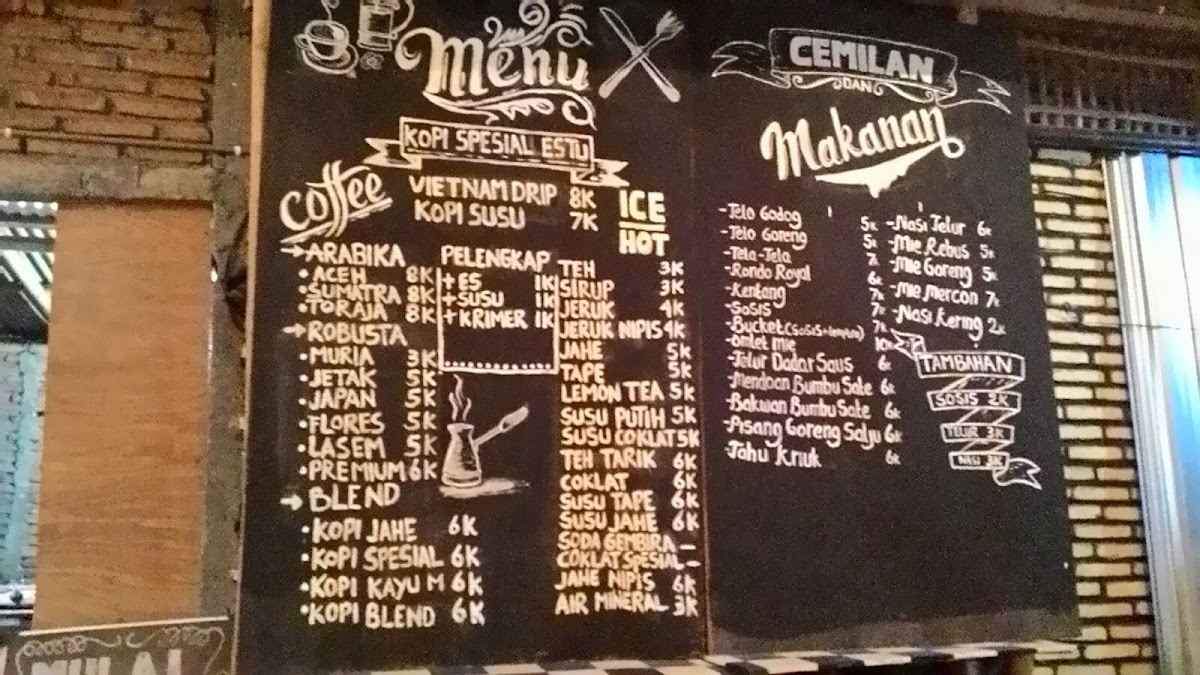 Menu
KOPI SPESIAL ESTU
Coffee
VIETNAM DRIP 8K
KOPI SUSU 7K
ICE
HOT
ARABIKA
ACEH 8K
SUMATRA 8K
TORAJA 8K
ROBUSTA
MURIA 3K
JETAK 5K
JAPAN 5K
FLORES 5K
LASEM 5K
PREMIUM 6K
BLEND
KOPI JAHE 6K
KOPI SPESIAL 6K
KOPI KAYU M 6K
KOPI BLEND 6K
PELENGKAP
+ ES 1K
+ SUSU 1K
+ KRIMER 1K
TEH 3K
SIRUP 3K
JERUK 4K
JERUK NIPIS 4K
JAHE 5K
TAPE 5K
LEMON TEA 5K
SUSU PUTIH 5K
SUSU COKLAT 5K
TEH TARIK 6K
COKLAT 6K
SUSU TAPE 6K
SUSU JAHE 6K
SODA GEMBIRA -
COKLAT SPESIAL -
JAHE NIPIS 6K
AIR MINERAL 3K
CEMILAN
DAN
Makanan
- Telo Godog 5K
- Telo Goreng 5K
- Tela-Tela 7K
- Rondo Royal 6K
- Kentang 7K
- Sosis 7K
- Bucket (SOSIS+kentang) 7K
- Omlet mie 10K
- Telur Dadar Saus 6K
- Mendoan Bumbu Sate 6K
- Bakwan Bumbu Sate 6K
- Pisang Goreng Salju 6K
- Tahu Kriuk 6K
- Nasi Telur 6K
- Mie Rebus 5K
- Mie Goreng 5K
- Mie Mercon 7K
- Nasi Kering 2K
TAMBAHAN
SOSIS 2K
TELUR 3K
NASI 3K
MULAI